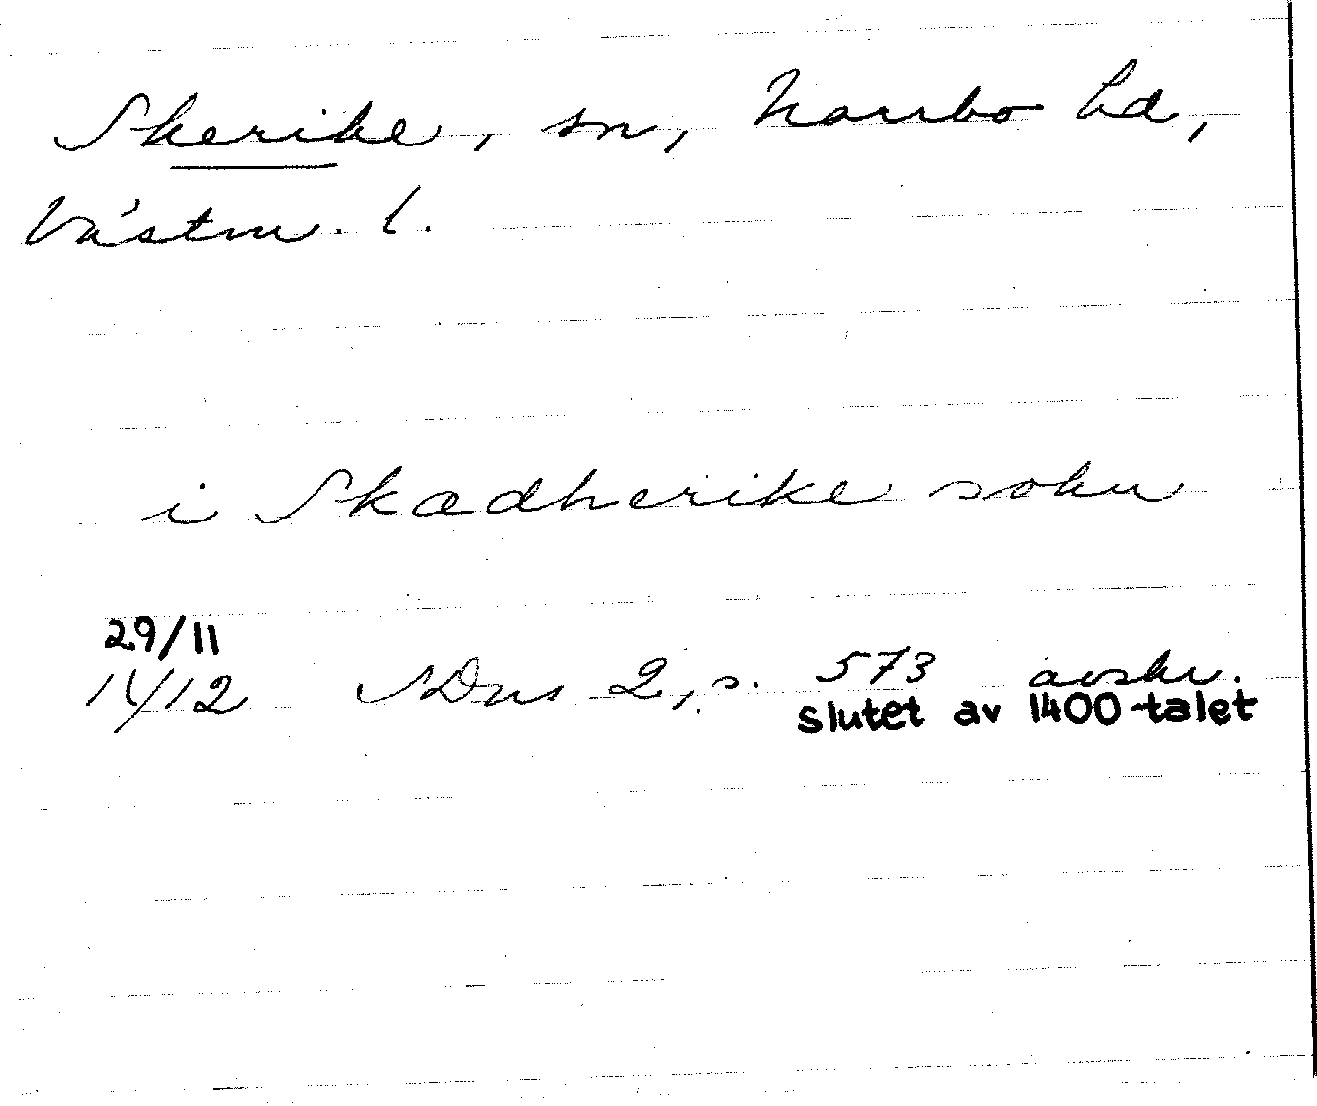 Skerike, sn, Norrbo hd,
Västm. l.
i Skædherike sokn
29/11
1412 SDns 2, s. 573 avskr.
slutet av 1400-talet